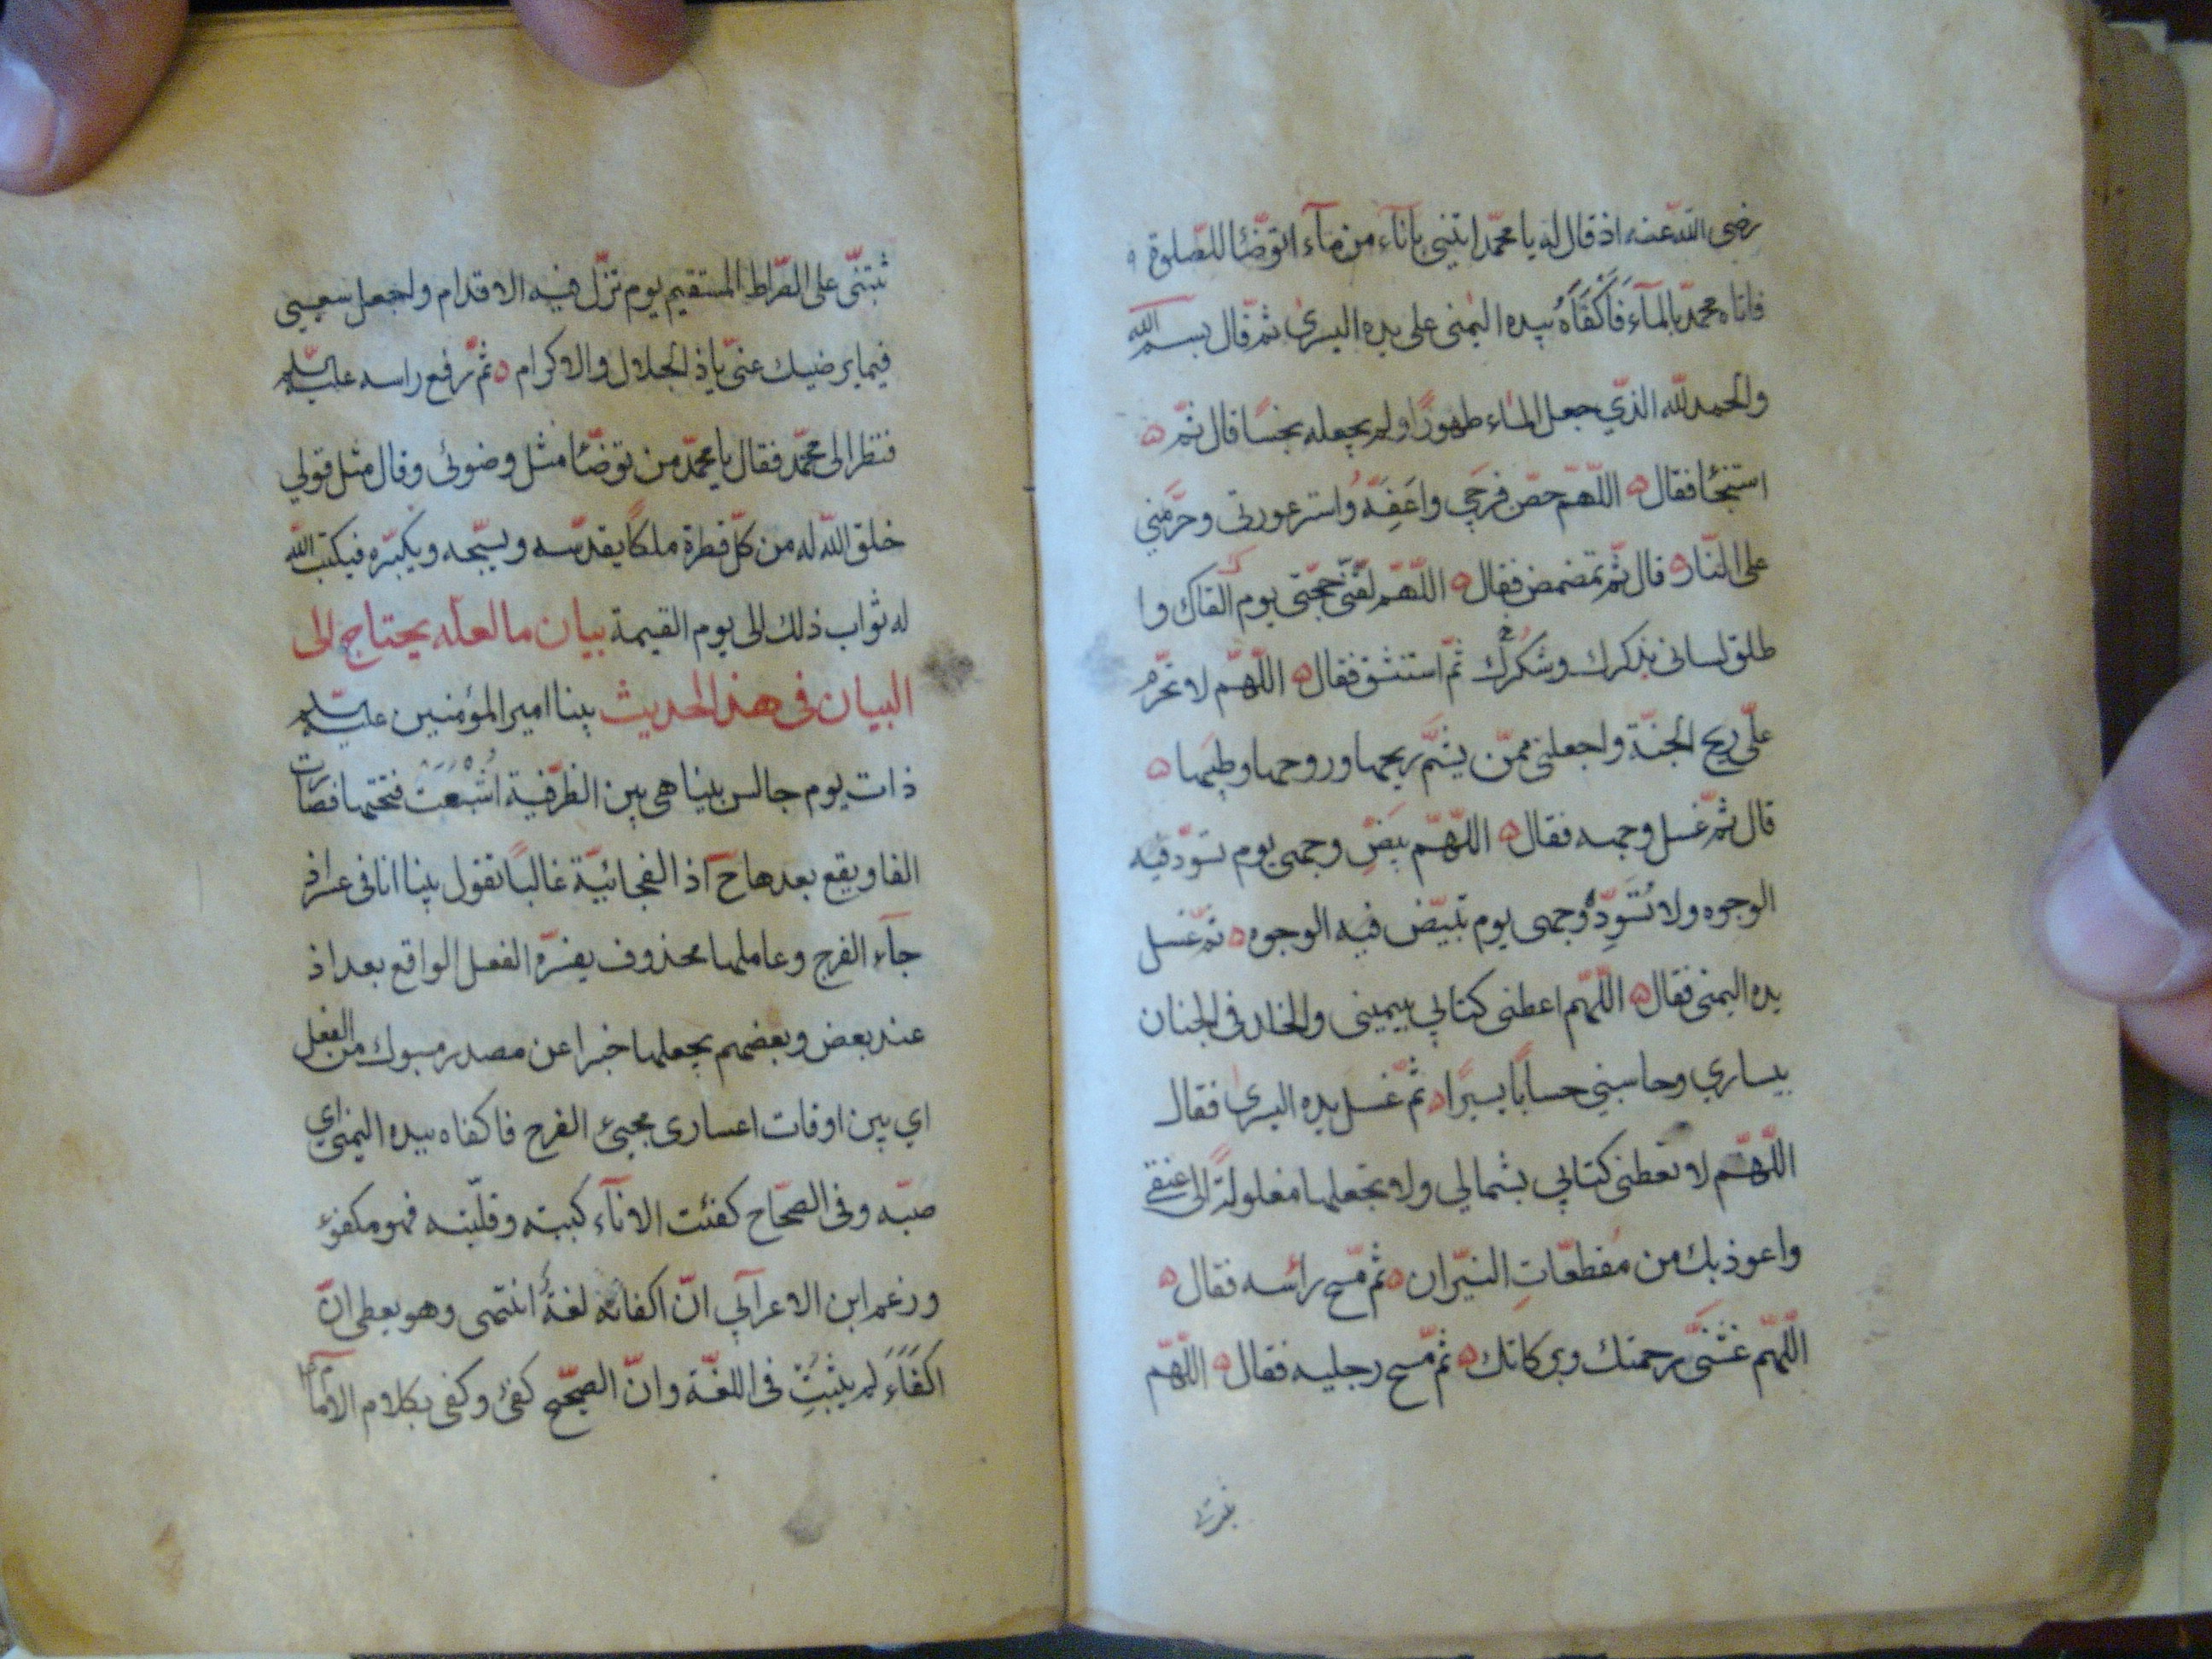 رضى الله عنه اذ قال له يا محمّد ايتنى باناء من مآء اتوضّئا للصّلوة
فاتاه محمّد بالمآء فَاَكْفَاَهُ بيده اليمنى على يده اليسرى ثمّ قال بسم الله
والحمد للّه الذّي جعل الماء طهورًا ولم يجعله نجسًا قال ثمّ
استنجئا فقال اللّهمّ حصّن فرجي واَعَفِّهُ واستر عورتى وحرّمنى
على النّار قال ثمّ تمضمض فقال اللّهمّ لقّنّى حجّتى يوم القاك وا
طلق لسانى بذكرك وشكرك ثمّ استنشق فقال اللّهمّ لا تحرّم
علّى ريح الجنّة واجعلنى ممّن يشمّ ريحها وروحها وطيبها
قال ثمّ غسل وجهه فقال اللّهمّ بيّض وجهى يوم تسوّد فيه
الوجوه ولا تُسَوِّدْ وجهى يوم تبيّض فيه الوجوه ثمّ غسل
يده اليمنى فقال اللّهمّ اعطنى كتابي بيمينى والخلد فى الجنان
بيساري وحاسبني حسابًا يسيرًا ثمّ غسل يده اليسرى فقال
اللّهمّ لا تعطنى كتابي بشمالي ولا تجعلها مغلولة الى عنقي
واعوذ بك من مُقطعّاتِ النيّران ثمّ مسّح رأسه فقال
اللّهمّ غَشّنىّ برحمتك وبركاتك ثمّ مسّح رجليه فقال اللّهمّ
ثبّتنى
ثبّتنّى على الصّراط المستقيم يوم تزلّ فيه الاقدام واجعل سعيي
فيما يرضيك عنىّ ياذ الجلال والاكرام ثمّ رفع راسه عليه السّلم
فنظر الى محمّد فقال يا محمّد من توضّئا مثل وضوئى وقال مثل قولي
خلق اللّه له من كلّ قطرة ملكًا يقدّسه ويسبّحه ويكبّره فيكتب اللّه
له ثواب ذلك الى يوم القيمة بيان ما لعلّه يحتاج الى
البيان فى هذا الحديث بينا امير المؤمنين عليه السّلم
ذات يوم جالس بينا هى بين الظرّفية اُشْبِعَتْ فتحتها فصارت
الفا ويقع بعدها ح اذ الفجائيّة غالبًا تقول بينا انا فى عسر اذ
جآء الفرج وعاملها محذوف يفسّره الفعل الواقع بعد اذ
عند بعض وبعضهم يجعلها خبرا عن مصدر مسبوك من الفعل
اي بين اوقات اعسارى مجيئ الفرج فاكفاه بيده اليمنى اي
صبّه وفى الصحّاح كفئت الانآء كببته وقلّبته فهو مكفوء
وزعم ابن الاعرآبي انّ اكفاته لغةً انتهى وهو يعطى انّ
اَكْفَاَءَ لم يثبتْ فى اللغّة وانّ الصحّيح كفئ وكفى بكلام الامآم